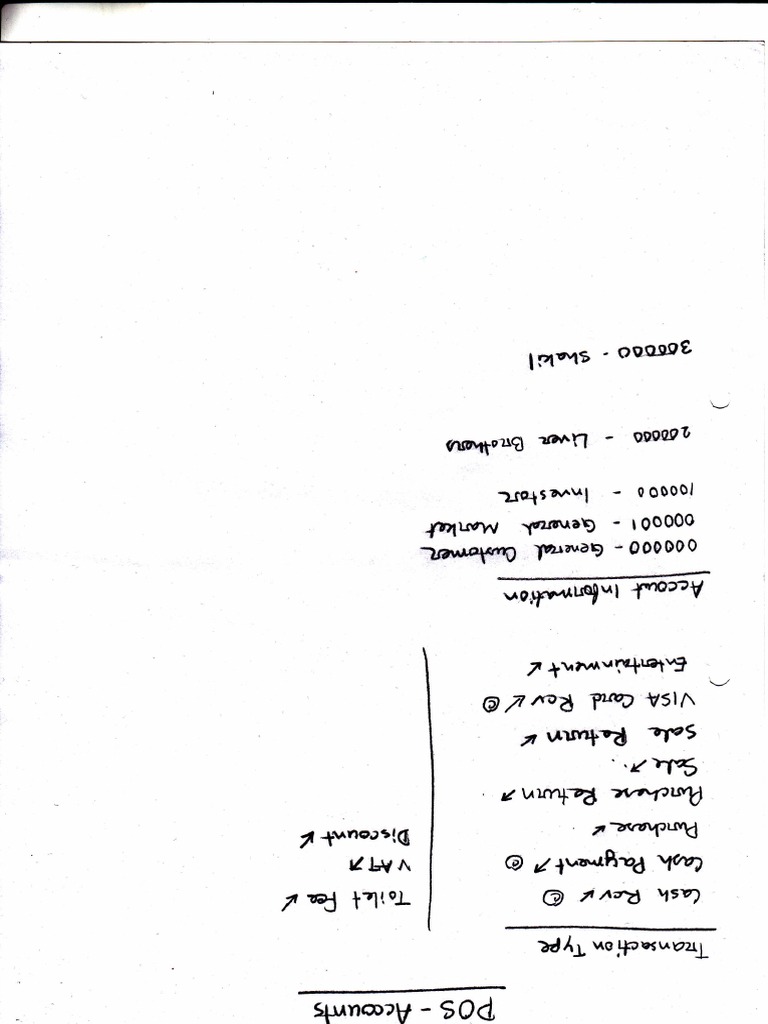 POS - Accounts
Transaction Type
Cash Rcv ↗ ©
Cash Payment ↙ ©
Purchase ↗
Purchase Return ↙
Sale ↙
Sale Return ↗
VISA Card Rcv ↗ ©
Entertainment ↗
Toilet Fee ↗
VAT ↙
Discount ↗
Account Information
000000 - General Customer
000001 - General Market
100000 - Investor
200000 - Liver Brothers
300000 - Shakil